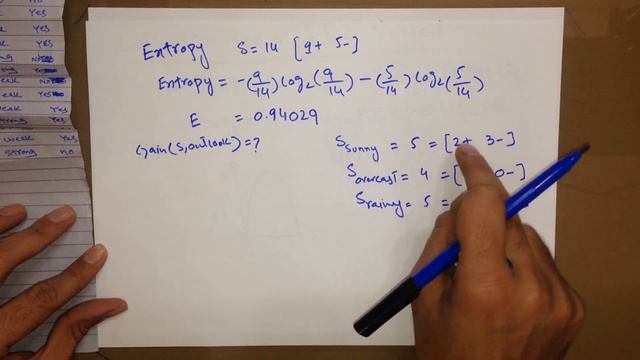 Yes
Yes
Yes
Yes
Yes
weak Yes
strong no
Entropy S = 14 [9+ 5-]
Entropy = -(9/14) log₂(9/14) - (5/14) log₂(5/14)
E = 0.94029
Gain(S,outlook) = ?
S sunny = 5 = [2+ 3-]
S overcast = 4 = [ 0-]
S rainy = 5 =